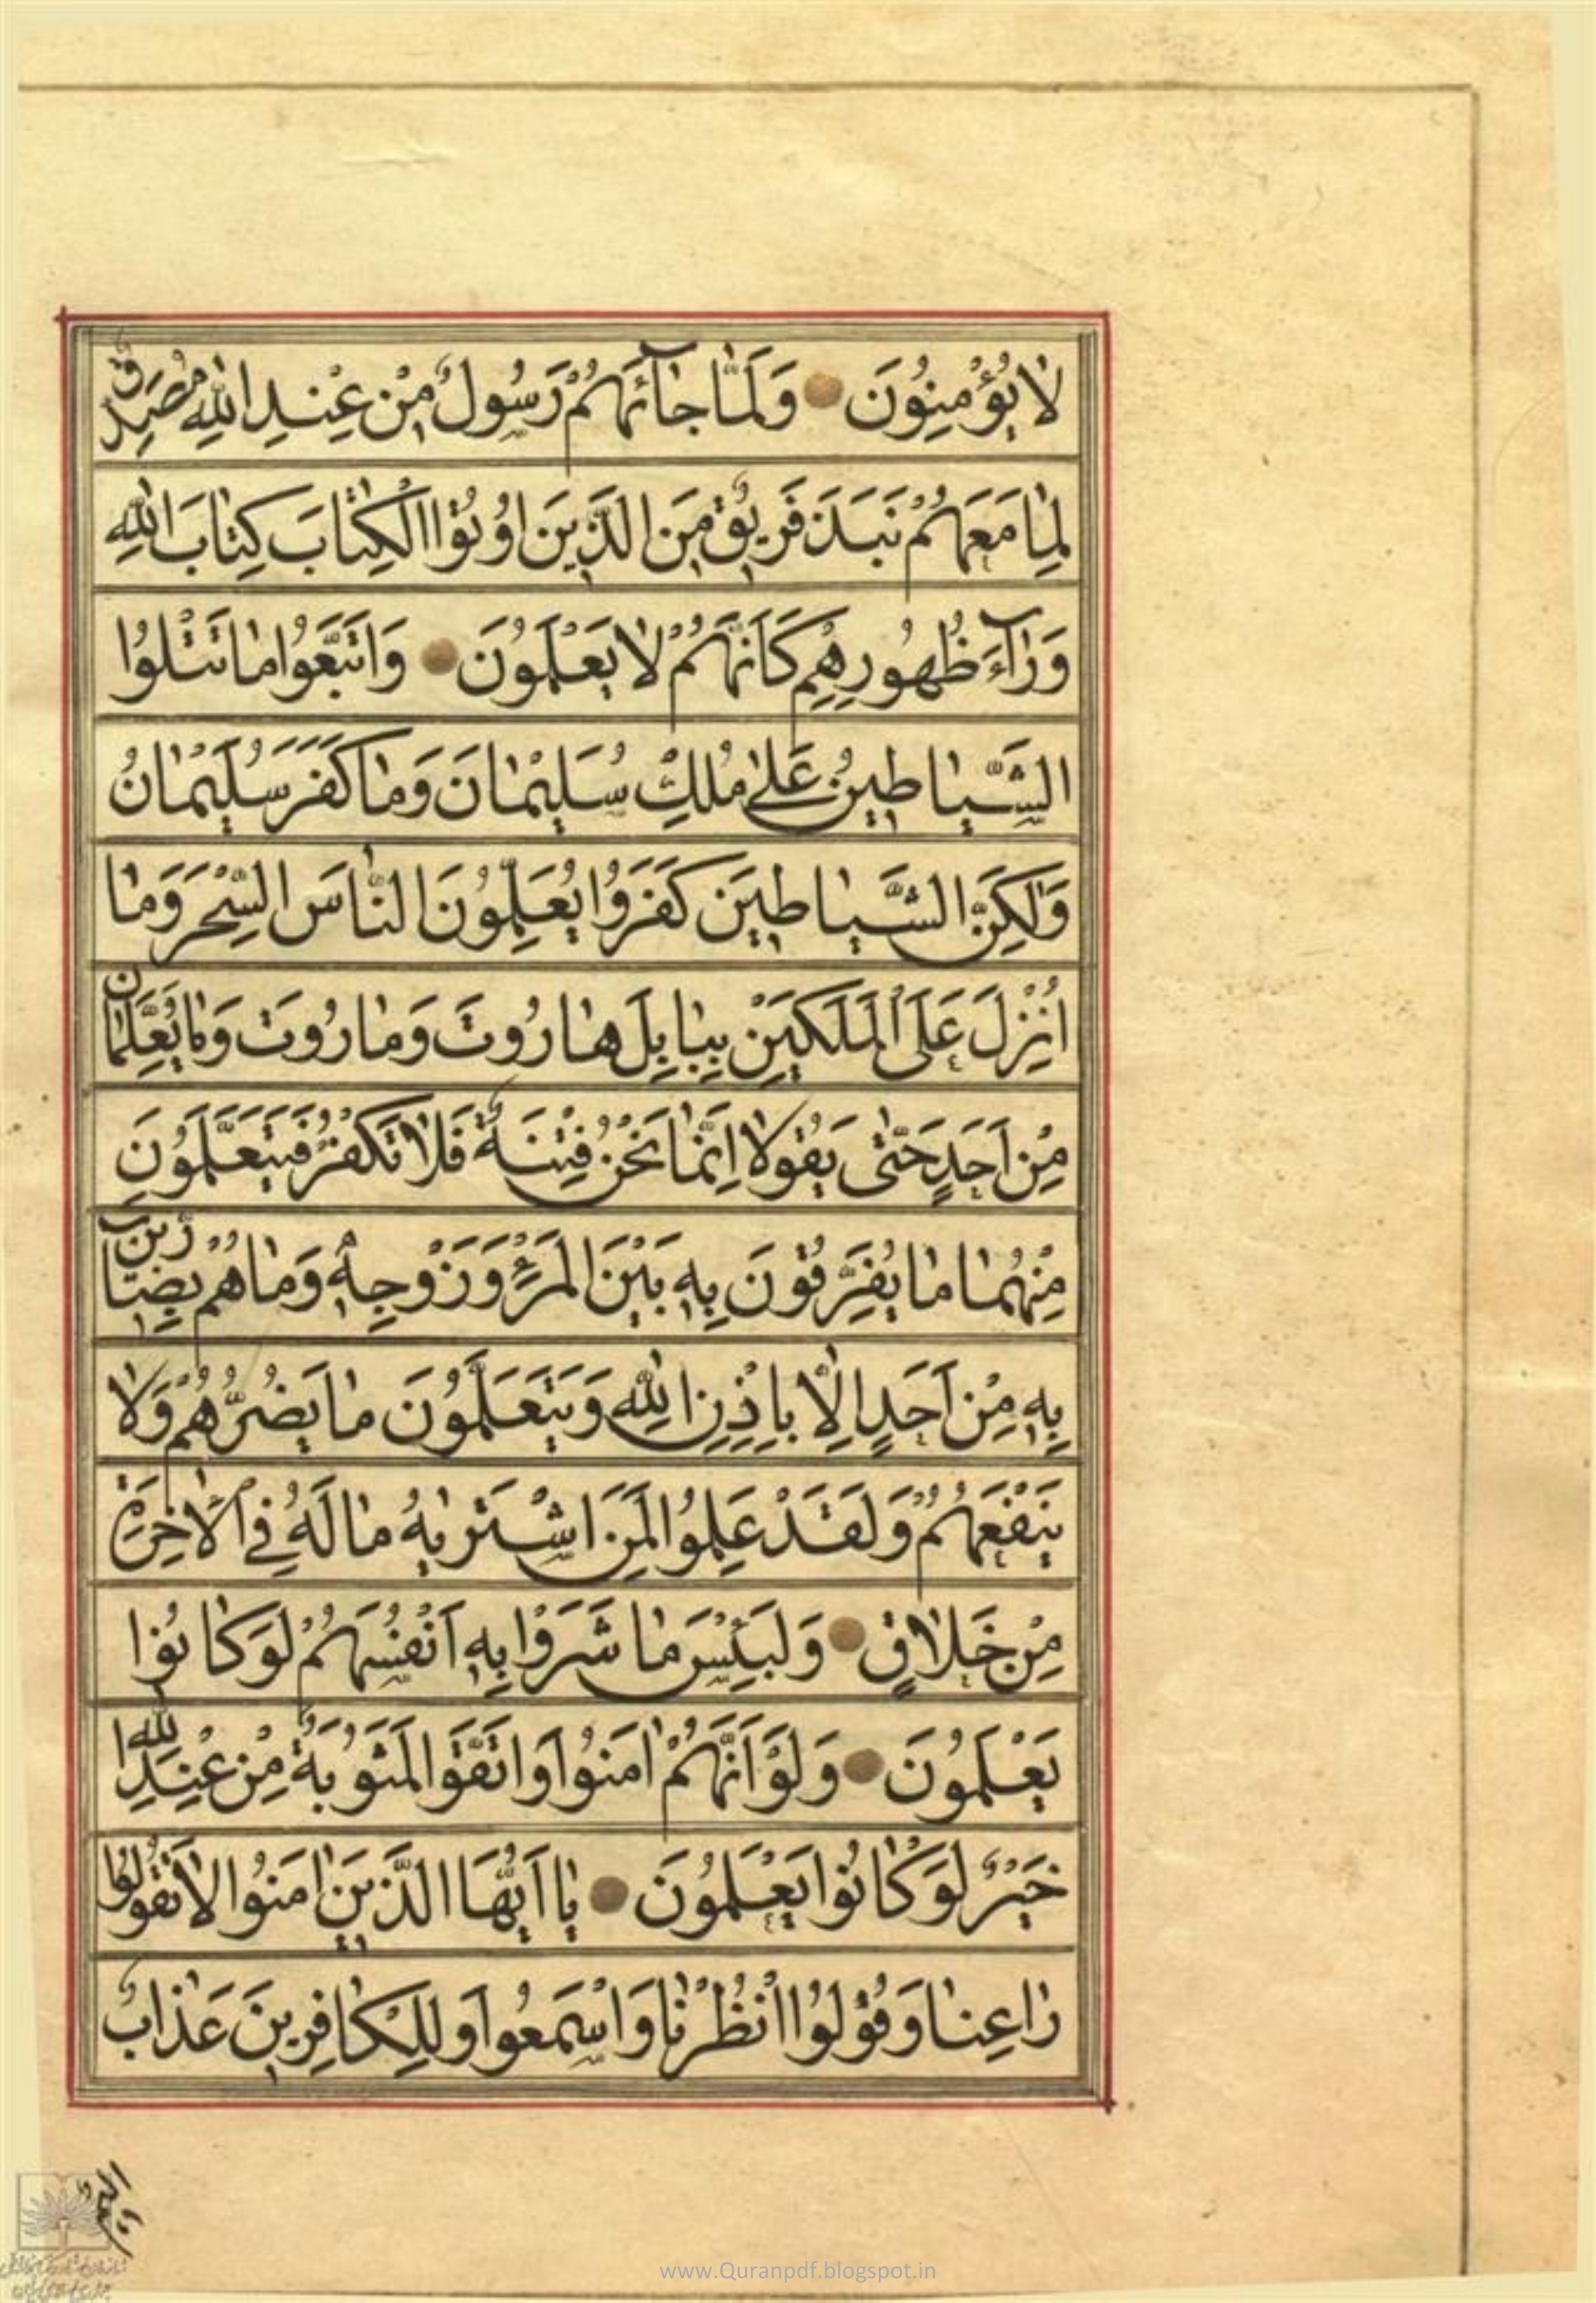 لَا يُؤْمِنُونَ وَلَمَّا جَآئَهُمْ رَسُولٌ مِنْ عِنْدِ اللهِ مُصَدِّقٌ
لِمَا مَعَهُمْ نَبَذَ فَرِيقٌ مِنَ الَّذِينَ اُوتُوا الْكِتَابَ كِتَابَ اللهِ
وَرَآءَ ظُهُورِهِمْ كَاَنَّهُمْ لَا يَعْلَمُونَ وَاتَّبَعُوا مَا تَتْلُوا
الشَّيَاطِينُ عَلٰى مُلْكِ سُلَيْمَانَ وَمَا كَفَرَ سُلَيْمَانُ
وَلٰكِنَّ الشَّيَاطِينَ كَفَرُوا يُعَلِّمُونَ النَّاسَ السِّحْرَ وَمَا
اُنْزِلَ عَلَى الْمَلَكَيْنِ بِبَابِلَ هَارُوتَ وَمَارُوتَ وَمَا يُعَلِّمَانِ
مِنْ اَحَدٍ حَتّٰى يَقُولَا اِنَّمَا نَحْنُ فِتْنَةٌ فَلَا تَكْفُرْ فَيَتَعَلَّمُونَ
مِنْهُمَا مَا يُفَرِّقُونَ بِهِ بَيْنَ الْمَرْءِ وَزَوْجِهِ وَمَا هُمْ بِضَارِّينَ
بِهِ مِنْ اَحَدٍ اِلَّا بِاِذْنِ اللهِ وَيَتَعَلَّمُونَ مَا يَضُرُّهُمْ وَلَا
يَنْفَعُهُمْ وَلَقَدْ عَلِمُوا لَمَنِ اشْتَرٰيهُ مَا لَهُ فِي الْاٰخِرَةِ
مِنْ خَلَاقٍ وَلَبِئْسَ مَا شَرَوْا بِهِ اَنْفُسَهُمْ لَوْ كَانُوا
يَعْلَمُونَ وَلَوْ اَنَّهُمْ اٰمَنُوا وَاتَّقَوْا لَمَثُوبَةٌ مِنْ عِنْدِ اللهِ
خَيْرٌ لَوْ كَانُوا يَعْلَمُونَ يَا اَيُّهَا الَّذِينَ اٰمَنُوا لَا تَقُولُوا
رَاعِنَا وَقُولُوا انْظُرْنَا وَاسْمَعُوا وَلِلْكَافِرِينَ عَذَابٌ
www.Quranpdf.blogspot.in